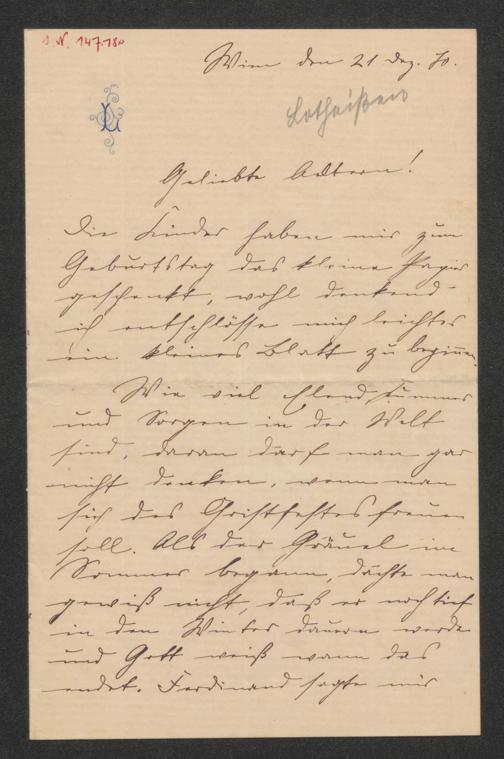 I. N. 147.180
Wien den 21 Dez. 70.
L
Lotheißen
Geliebte Aeltern!
Die Kinder haben mir zum
Geburtstag das kleine Papier
geschenkt, wohl denkend
ich entschlösse mich leichter
ein kleines Blatt zu beginnen.
Wie viel Elend Kummer
und Sorgen in der Welt
sind, daran darf man gar
nicht denken, wenn man
sich des Christfestes freuen
soll. Als der Gräuel im
Sommer begann, dachte man
gewiß nicht, daß er noch tief
in den Winter dauern werde
und Gott weiß wann das
endet. Ferdinand sagte mir